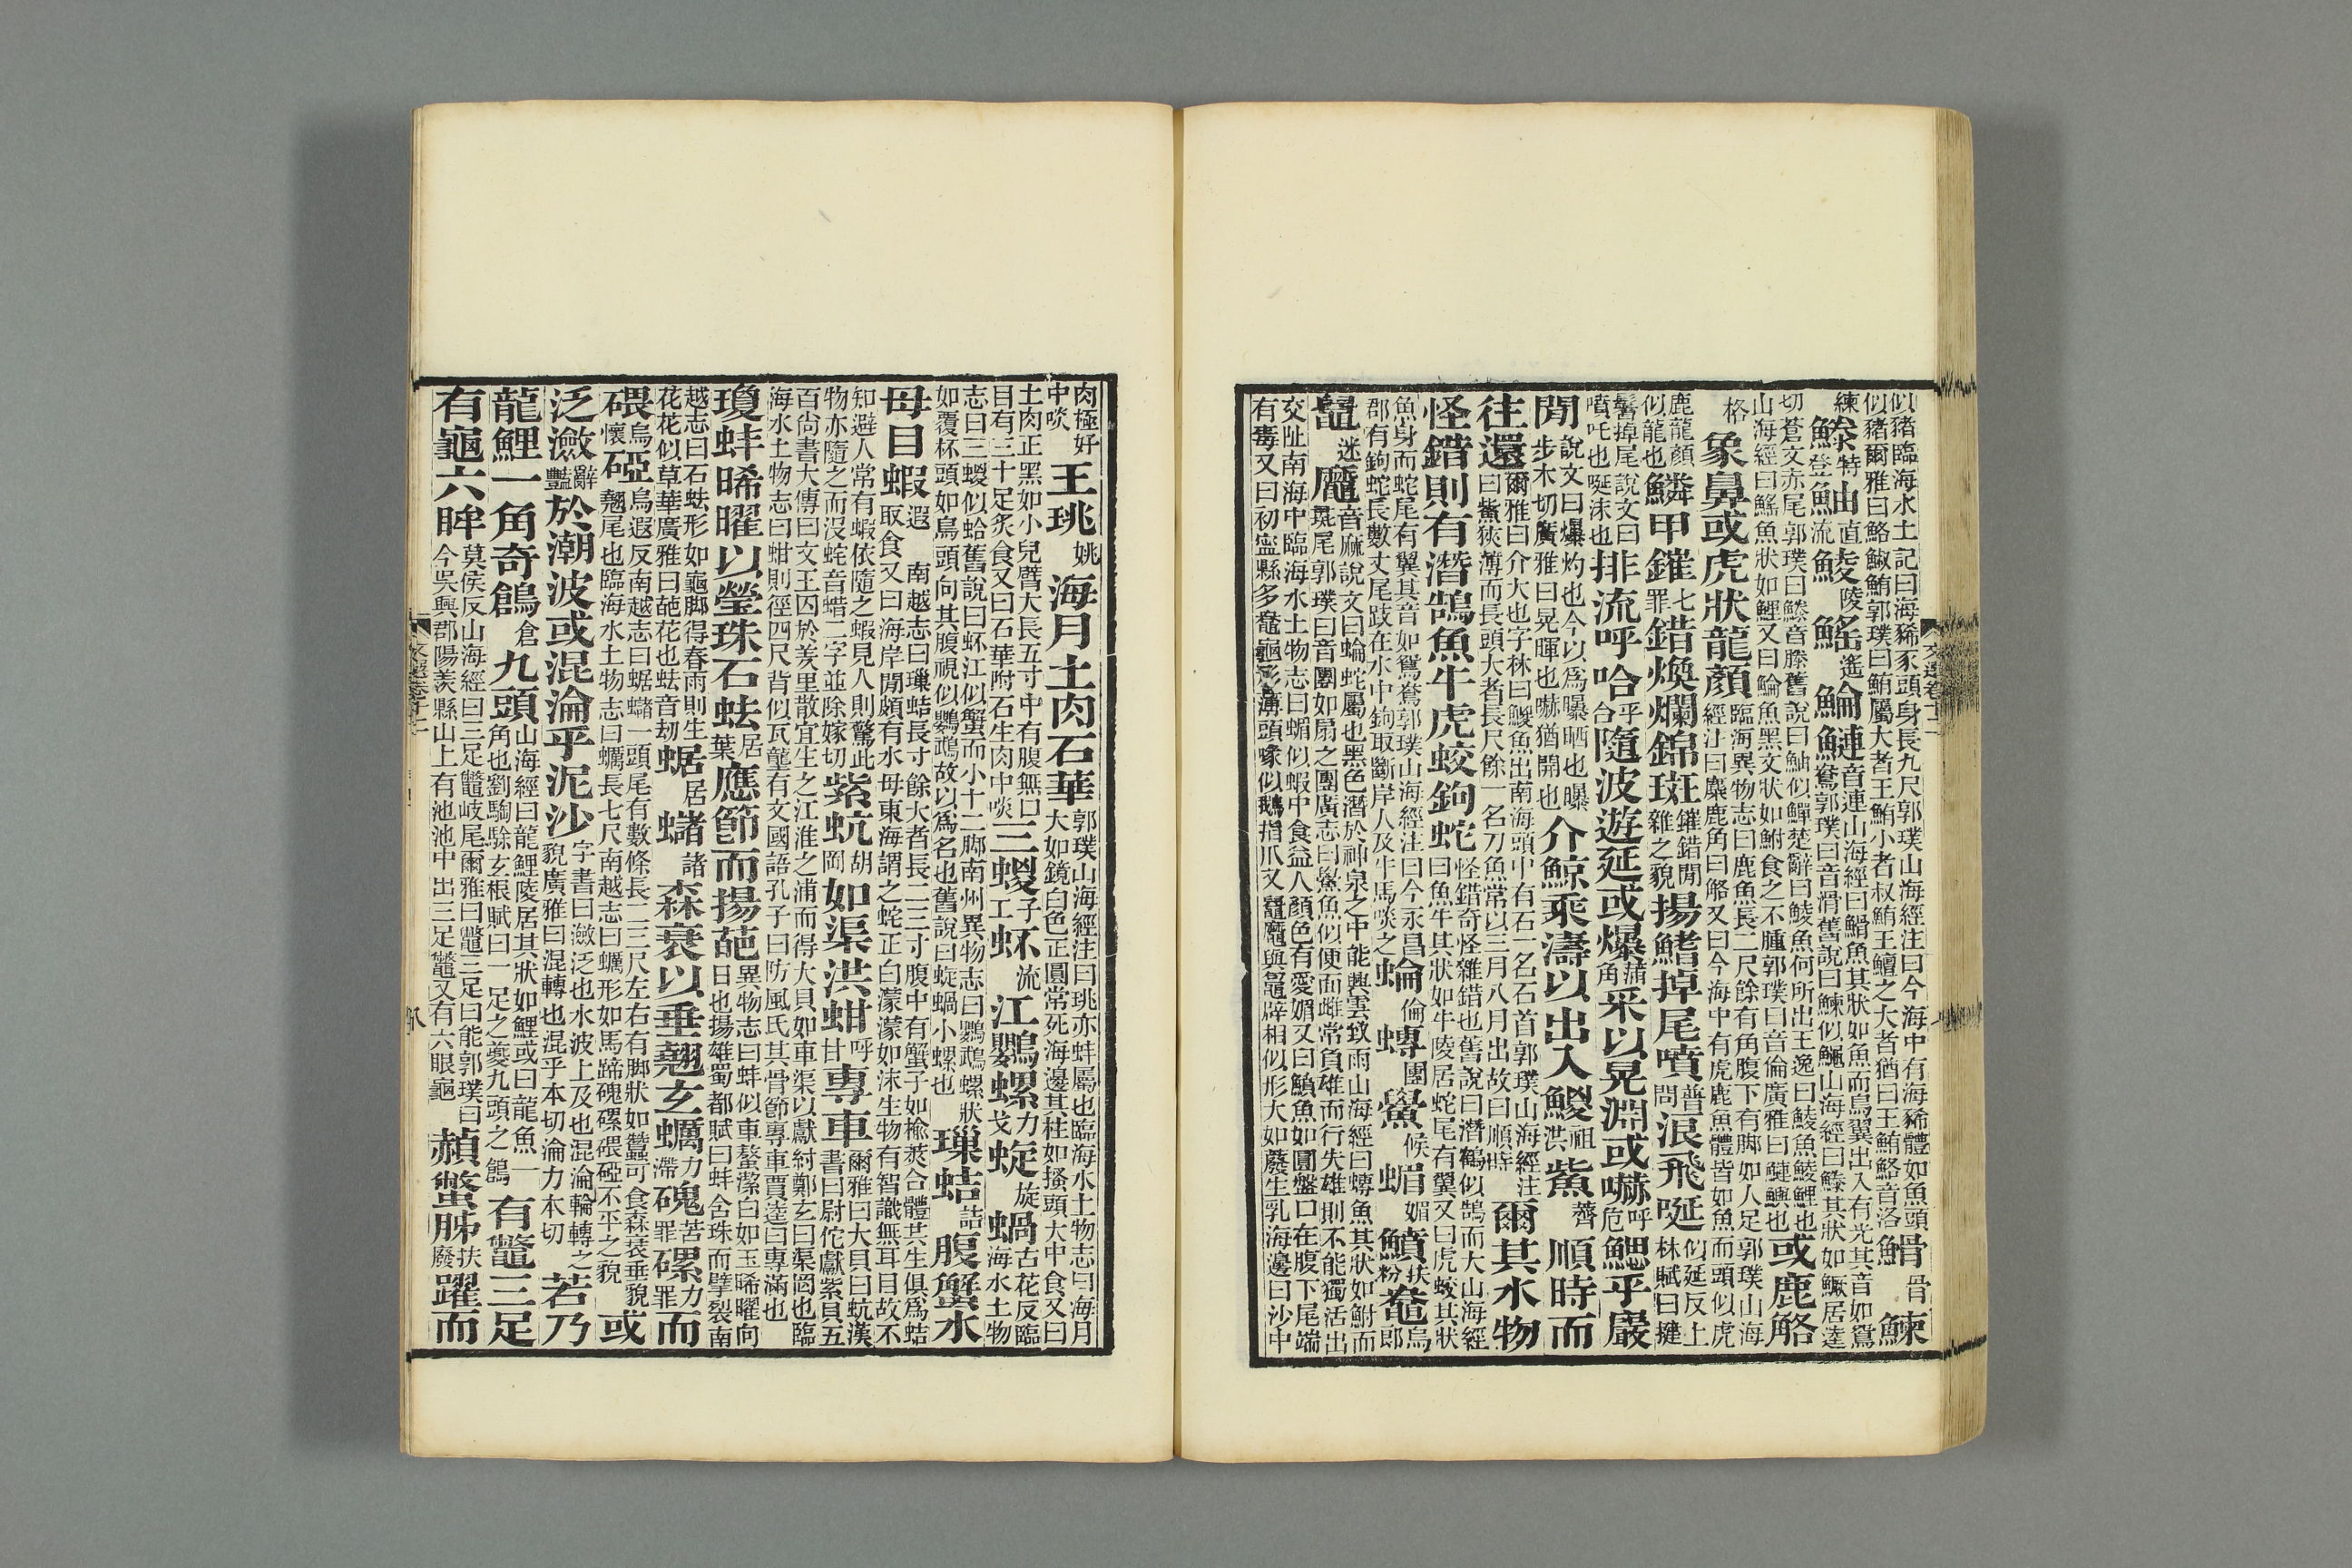 似豬臨海水土記曰海豨豕頭身長九尺郭璞山海經注曰今海中有海豨體如魚頭似豬爾雅曰鮥鮛鮪郭璞曰鮪屬大者王鮪小者叔鮪王鱣之大者猶曰王鮪鮥音洛䱻骨鰊
練鰧特登鮋直流鯪陵鰩遙鯩鰱音連山海經曰䱻魚其狀如魚而鳥翼出入有光其音如鴛鴦郭璞曰音滑舊說曰鰊似鱦山海經曰鰧其狀如鱖居逵
切蒼文赤尾郭璞曰鰧音滕舊說曰鮋似鱓楚辭曰鯪魚何所出王逸曰鯪魚鯪鯉也山海經曰鰩魚狀如鯉又曰鯩魚黑文狀如鮒食之不腫郭璞曰音倫廣雅曰鰱鱮也或鹿觡
格象鼻或虎狀龍顏臨海異物志曰鹿魚長二尺餘有角腹下有脚如人足郭璞山海經注曰麋鹿角曰觡又曰今海中有虎鹿魚體皆如魚而頭似虎
鹿龍顏似龍也鱗甲鏙七罪錯煥爛錦斑鏙錯閒雜之貌揚鰭掉尾噴普問浪飛唌似延反上林賦曰揵
鬐掉尾說文曰噴吒也唌沫也排流呼哈乎台隨波遊延或爆蒲角采以晃淵或嚇呼厄鰓乎巖
閒說文曰爆灼也今以爲曝晒也曝步木切廣雅曰晃暉也嚇猶開也介鯨乘濤以出入鯼祖洪鮆薺順時而
往還爾雅曰介大也字林曰鯼魚出南海頭中有石一名石首郭璞山海經注曰鮆狹薄而長頭大者長尺餘一名刀魚常以三月八月出故曰順時爾其水物
怪錯則有潛鵠魚牛虎蛟鉤蛇怪錯奇怪雜錯也舊說曰潛鵠似鵠而大山海經曰魚牛其狀如牛陵居蛇尾有翼又曰虎蛟其狀
魚身而蛇尾有翼其音如鴛鴦郭璞山海經注曰今永昌郡有鉤蛇長數丈尾跂在水中鉤取斷岸人及牛馬啖之蜦倫䗬團鱟候蝞媚鱝扶粉鼋烏郎
鼊迷䗫音麻說文曰蜦蛇屬也黑色潛於神泉之中能興雲致雨山海經曰䗬魚其狀如鮒而彘尾郭璞曰音團如扇之團廣志曰鱟魚似便面雌常負雄而行失雄則不能獨活出
交阯南海中臨海水土物志曰蝞似蝦中食益人顏色有愛媚又曰鱝魚如圓盤口在腹下尾端有毒又曰初寍縣多鼋龜形薄頭喙似鵝指爪又鼊䗫與鼋辟相似形大如𧒭生乳海邊曰沙中
肉極好中啖王珧姚海月土肉石華郭璞山海經注曰珧亦蚌屬也臨海水土物志曰海月大如鏡白色正圓常死海邊其柱如搔頭大中食又曰
土肉正黑如小兒臂大長五寸中有腹無口目有三十足炙食又曰石華附石生肉中啖三蝬子工蚢流江鸚螺力戈蜁旋蝸古花反臨海水土物
志曰三蝬似蛤舊說曰蚢江似蟹而小十二脚南州異物志曰鸚鵡螺狀如覆杯頭如鳥頭向其腹視似鸚鵡故以爲名也舊說曰蜁蝸小螺也璅蛣詰腹蟹水
母目蝦遐南越志曰璅蛣長寸餘大者長二三寸腹中有蟹子如榆莢合體共生俱爲蛣取食又曰海岸閒頗有水母東海謂之䖳正白濛濛如沫生物有智識無耳目故不
知避人常有蝦依隨之蝦見人則驚此物亦隨之而沒䖳音蜡二字並除嫁切紫蚢胡岡如渠洪蚶呼甘專車爾雅曰大貝曰蚢漢書曰尉佗獻紫貝五
百尙書大傳曰文王囚於羑里散宜生之江淮之浦而得大貝如車渠以獻紂鄭玄曰渠罔也臨海水土物志曰蚶則徑四尺背似瓦壟有文國語孔子曰防風氏其骨節專車賈逵曰專滿也
瓊蚌晞曜以瑩珠石蚨居葉應節而揚葩異物志曰蚌似車螯潔白如玉晞曜向日也揚雄蜀都賦曰蚌含珠而擘裂南
越志曰石蚨形如龜脚得春雨則生花花似草華廣雅曰葩花也蚨音刧蜛居蝫諸森衰以垂翹玄蠣力滯磈苦罪磥力罪而
碨烏懷硪烏遐反南越志曰蜛蝫一頭尾有數條長二三尺左右有脚狀如蠶可食森衰垂貌翹尾也臨海水土物志曰蠣長七尺南越志曰蠣形如馬蹄磈磥碨硪不平之貌或
泛瀲辭豔於潮波或混淪乎泥沙字書曰瀲泛也水波上及也混淪輪轉之貌廣雅曰混轉也混乎本切淪力本切若乃
龍鯉一角奇鶬倉九頭山海經曰龍鯉陵居其狀如鯉或曰龍魚一角也劉騊駼玄根賦曰一足之夔九頭之鶬有鼈三足
有龜六眸莫侯反山海經曰三足鼈岐尾爾雅曰鼈三足曰能郭璞曰今吳興郡陽羨縣山上有池池中出三足鼈又有六眼龜赬蟞胏扶廢躍而
文選卷十二
八